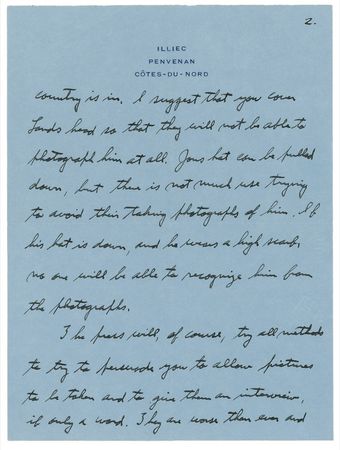 2.
ILLIEC
PENVENAN
CÔTES-DU-NORD
country is in. I suggest that you cover
Lands head so that they will not be able to
photograph him at all. Jons hat can be pulled
down, but there is not much use trying
to avoid their taking photographs of him. If
his hat is down, and he wears a high scarf,
no one will be able to recognize him from
the photographs.
The press will, of course, try all methods
to try to persuade you to allow pictures
to be taken and to give them an interview,
if only a word. They are worse than ever and